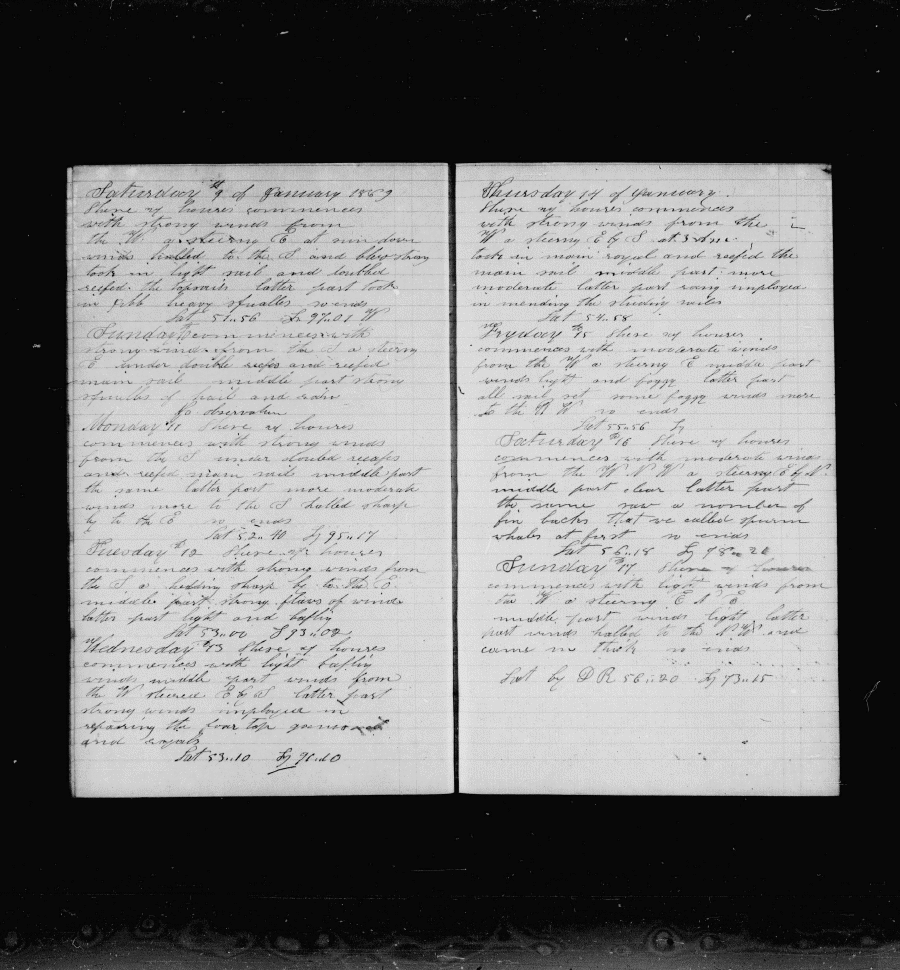 Saturday 9 of January 1869
These 24 houres commences
with strong winds from
the W a steering E at sun down
winds halled to the S and blew strong
took in light sail and doubled
reefed the topsails latter part took
in jibb heavy squalls so ends
Lat 51..56 Lg 97..01 W
Sunday commences with
strong winds from the S a steering
E under double reefs and reefed
main sail middle part strong
squalls of hail and rain
No observation
Monday 11 These 24 houres
commences with strong winds
from the S under doubled
and reefed main sail middle part
the same latter part more moderate
winds more to the S halled sharp
by to the E so ends
Lat 52..40 Lg 95..17
Tuesday 12 These 24 houres
commences with strong winds from
the S a heading sharp by to the E
middle part strong flaws of winds
latter part light and bafling
Lat 53..00 93..02
Wednesday 13 These 24 houres
commences with light bafling
winds middle part winds from
the W steered E by S latter part
strong winds imployed in
repairing the foar top
and
Lat 53..10 Lg 91..10
Thursday 14 of January
These 24 houres commences
with strong winds from the
W a steering E by S at
took in main royal and reefed the
main sail middle part more
moderate latter part imployed
in mending the studing sailes
Lat 54..58
Fryday 15 These 24 houres
commences with moderate winds
from the W a steering E middle part
winds light and foggy latter part
all sail set some foggy winds more
to the N W so ends
Lat 55..56 Lg
Saturday 16 These 24 houres
commences with moderate winds
from the W N W a steering E by N
middle part clear latter part
the same saw a number of
fin backs that we called spurm
whales at first so ends
Lat 56..18 Lg 78..20
Sunday 17 These 24 houres
commences with light winds from
the W a steering E N E
middle part winds light latter
part winds halled to the N W and
came in thick so ends
Lat by D R 56..20 Lg 73..15